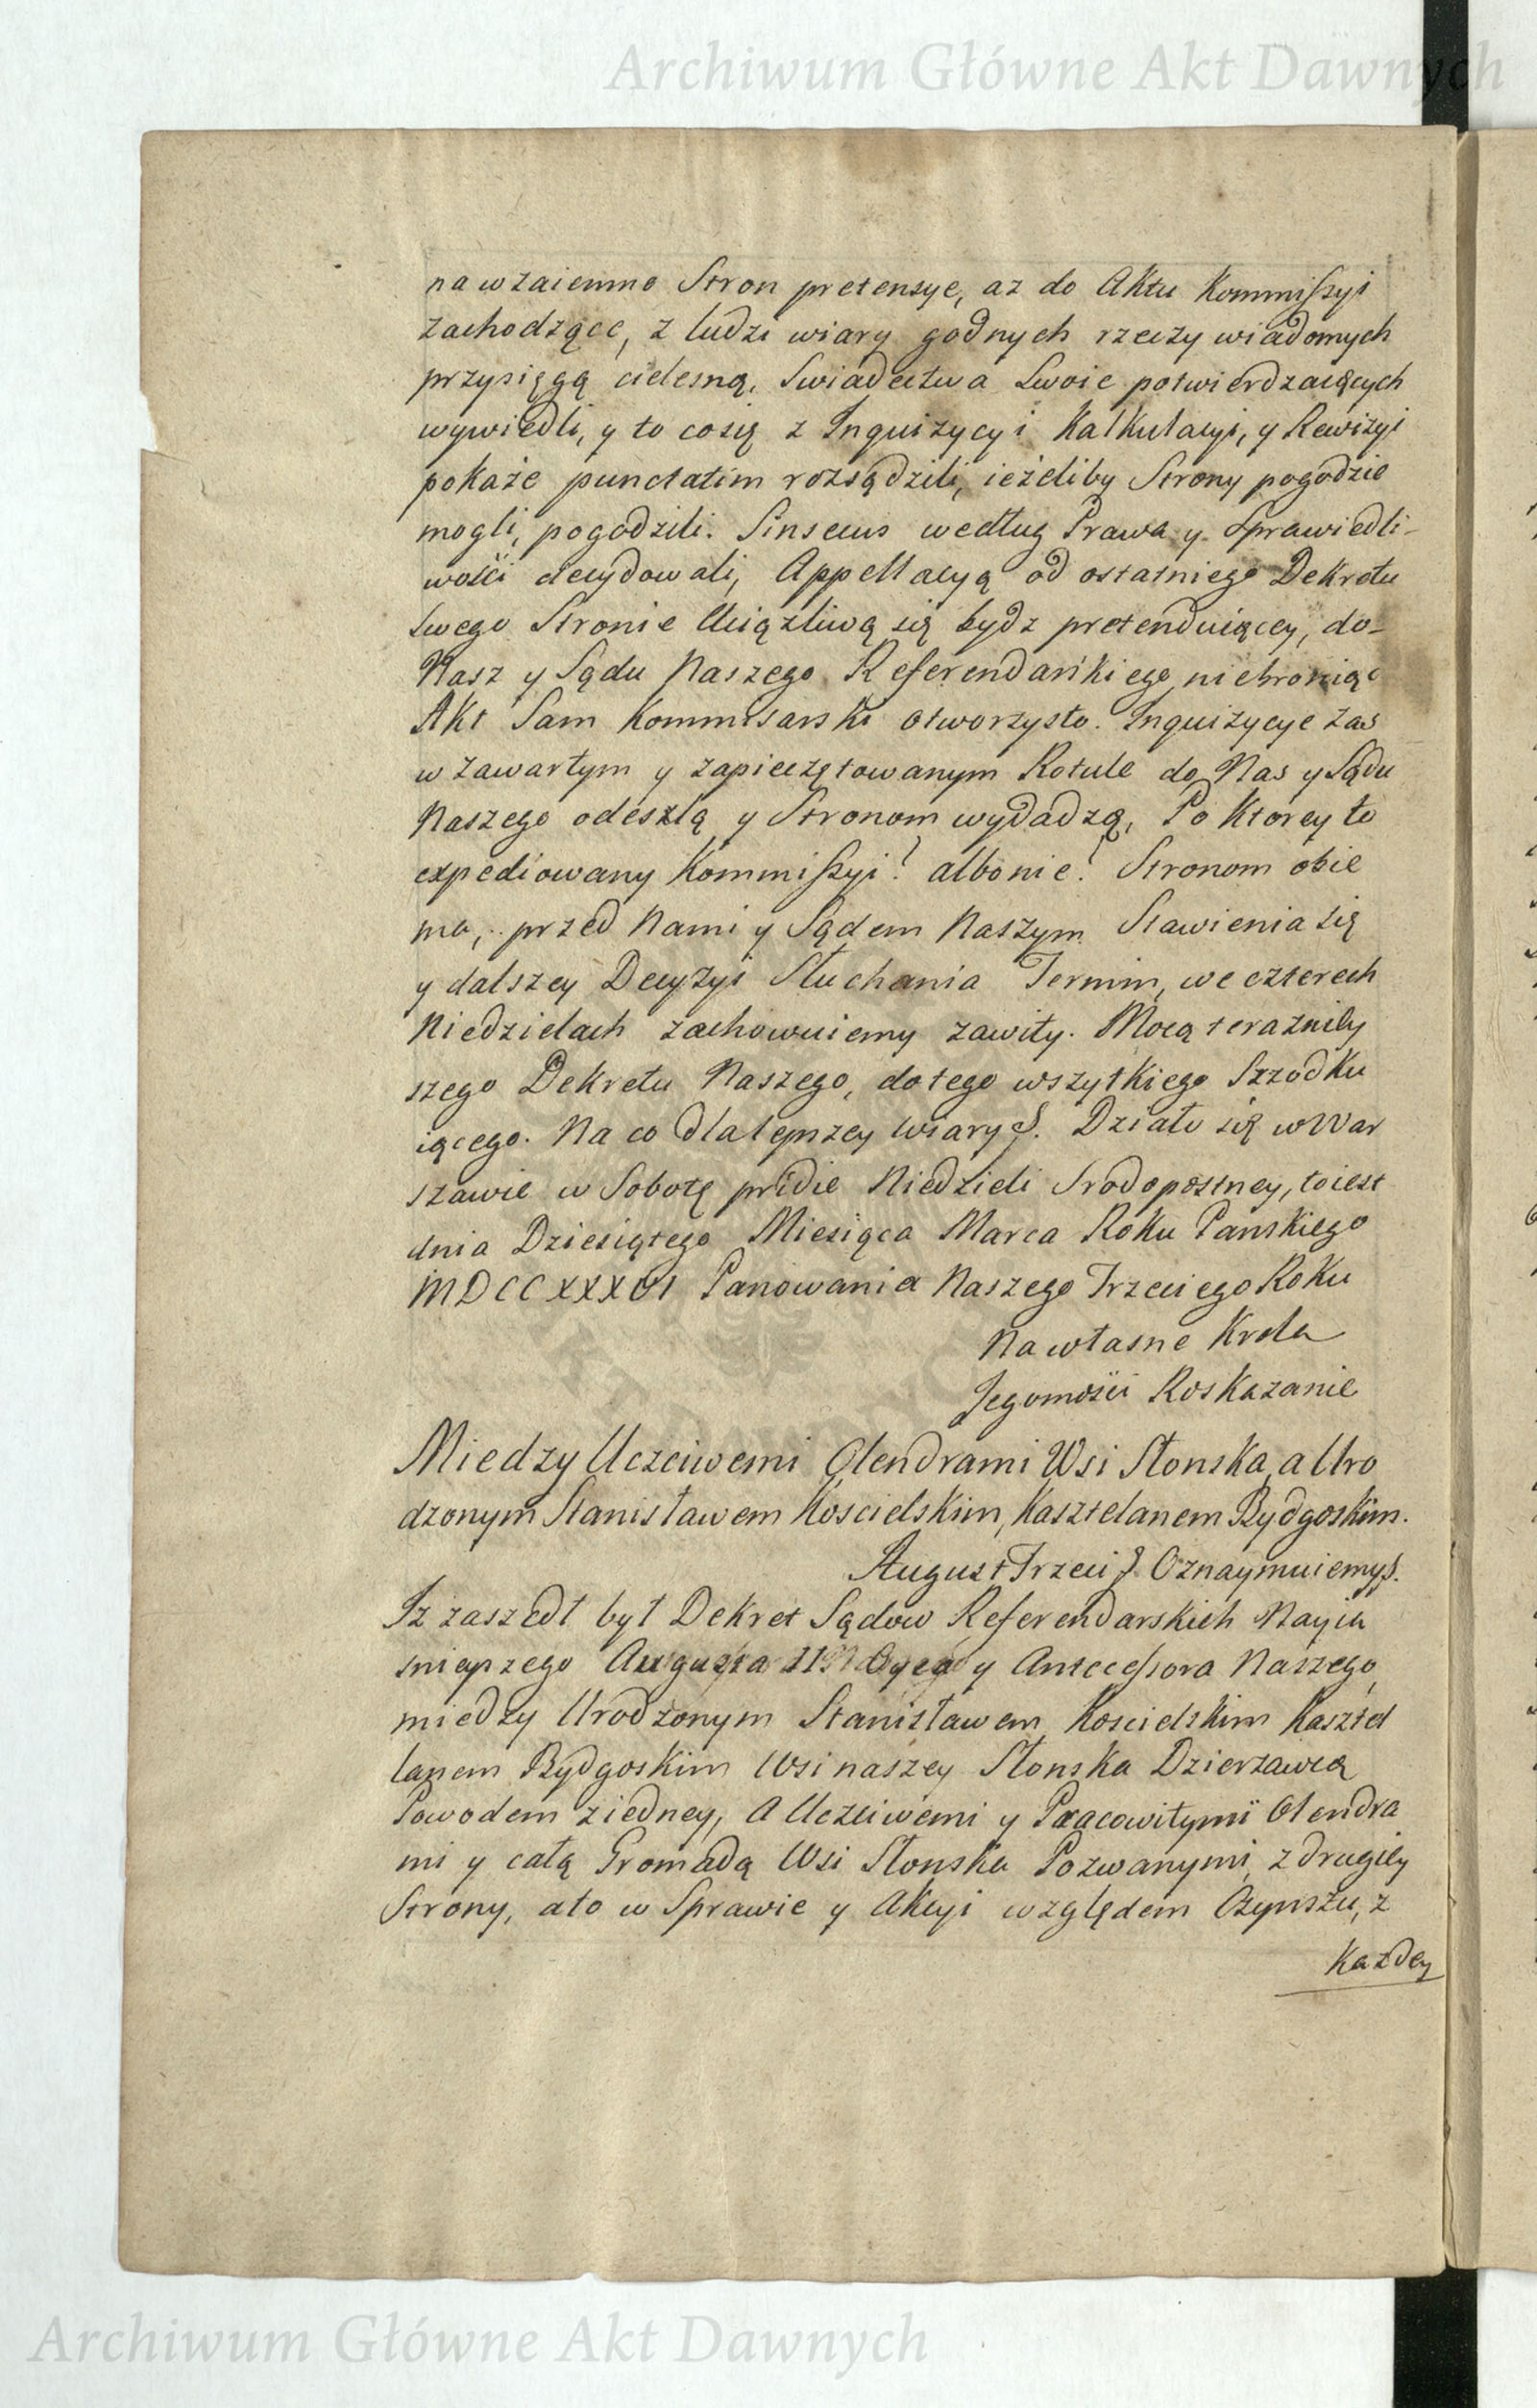 Archiwum Główne Akt Dawnych
na wzaiemne Stron pretensye, az do Aktu Kommissyi
zachodzące, z ludzi wiary godnych rzeczy wiadomych
przysięgą cielesną, Swiadectwa Swoie potwierdzaiących
wywiedli, y to cosię z Inquizycyi Kalkulacyi, y Rewizyi
pokaże punctatim rozsądzili, ieżeliby Strony pogodzic
mogli, pogodzili. Sinsecus według Prawa y Sprawiedli-
wości decydowali, Appellacyą od ostatniego Dekretu
Swego Stronie Uciązliwą się bydz pretenduiącey, do-
Nasz y Sądu Naszego Referendarskiego niebroniąc
Akt Sam Kommisarski otworzysto. Inquizycye zas
w zawartym y zapieczętowanym Rotule do Nas y Sądu
Naszego odeszlą y Stronom wydadzą, Po Ktorey to
expediowany Kommissyi! albonie! Stronom obie
ma, przed Nami y Sądem Naszym Stawienia się
y dalszey Decyzyi Słuchania Termin, we czterech
Niedzielach zachowuiemy zawity. Mocą terazniey
szego Dekretu Naszego, dotego wszytkiego Szzodku
iącego. Na co dla lepszey wiary §. Działo się w War
szawie w Sobotę pridie Niedzieli Srodopostney, toiest
dnia Dziesiątego Miesiąca Marca Roku Panskiego
MDCCXXXVI Panowania Naszego Trzeciego Roku
Na własne Krola
Jegomości Roskazanie
Miedzy Uczciwemi Olendrami Wsi Słonska, a Uro
dzonym Stanisławem Koscielskim, Kasztelanem Bydgoskim.
August Trzeci §. Oznaymuiemy §.
Iz zaszedł był Dekret Sądow Referendarskich Nayia
snieyszego Augusta II Oyca y Antecessora Naszego,
miedzy Urodzonym Stanisławem Koscielskim Kasztel
lanem Bydgoskim Wsi naszey Słonska Dzierzawcą
Powodem ziedney, A Uczciwemi y Pracowitymi Olendra
mi y całą Gromadą Wsi Słonska Pozwanymi, z drugiey
Strony, ato w Sprawie y Akcyi względem Czynszu, z
Kazdey
Archiwum Główne Akt Dawnych